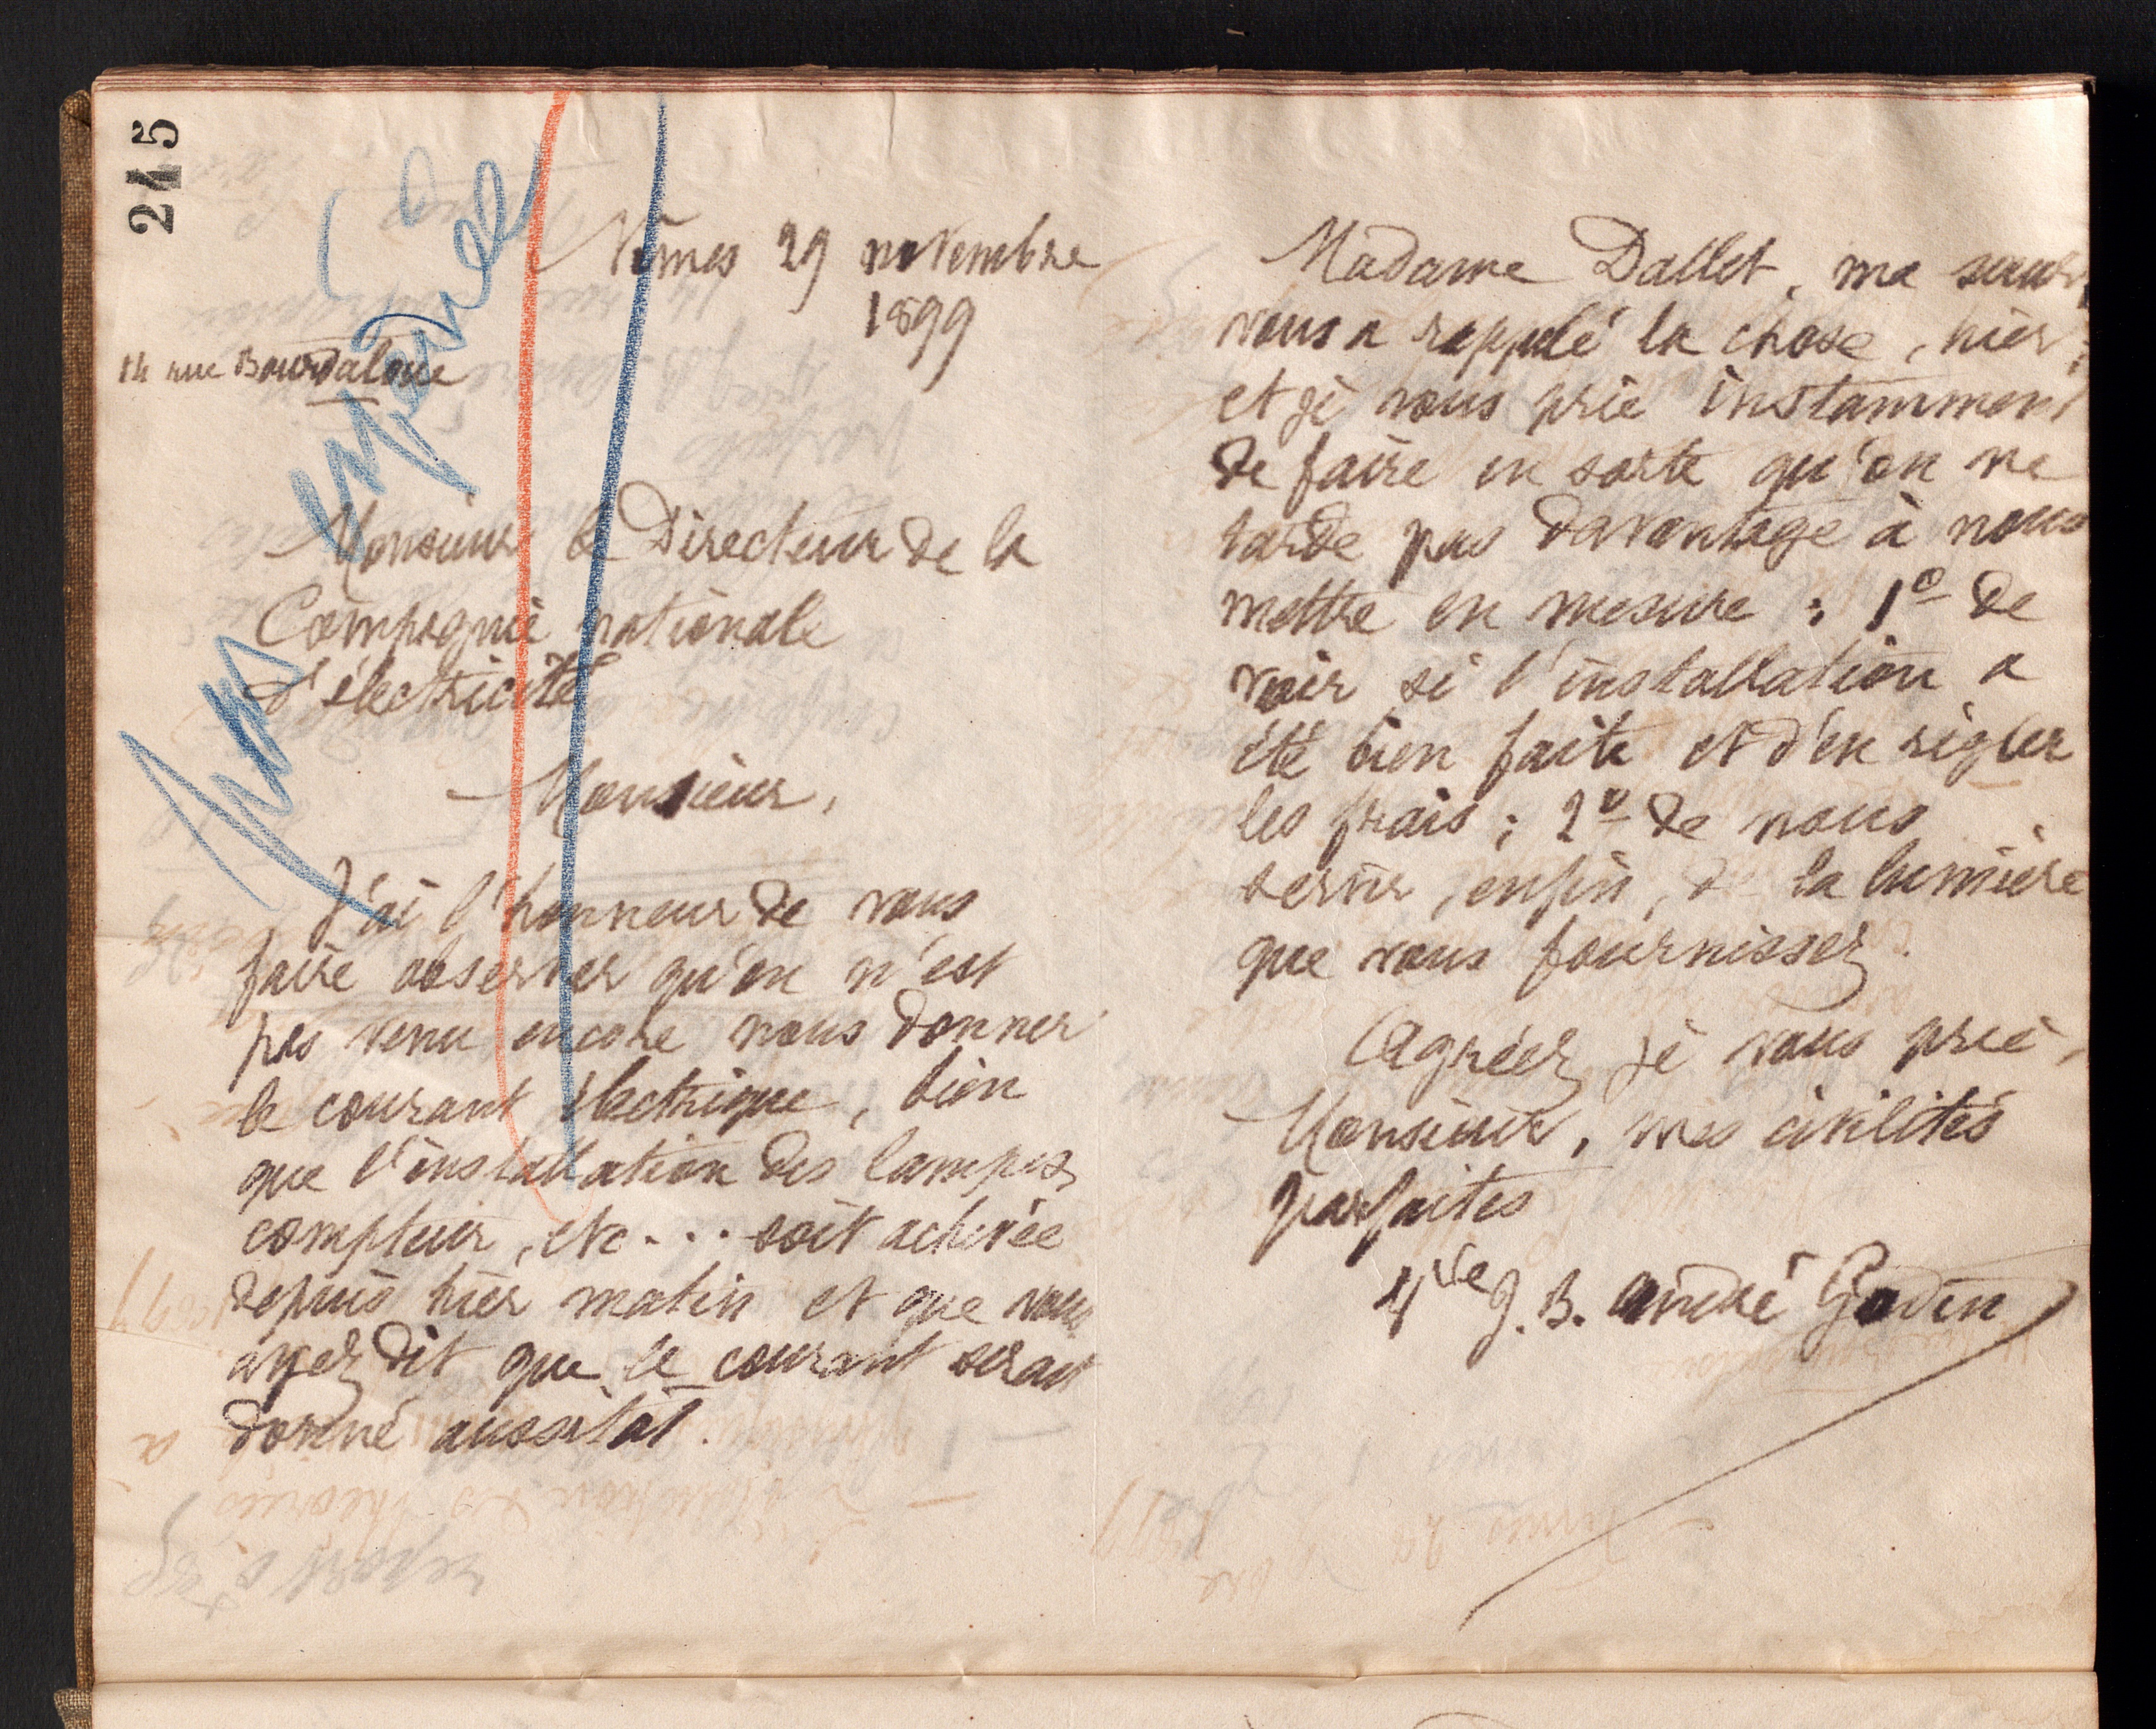 245
Nîmes 29 novembre
1899
14 rue Bourdaloue
non expédiée
Monsieur le Directeur de la
Compagnie nationale
d'électricité
Monsieur,
J'ai l'honneur de vous
faire observer qu'on n'est
pas venu encore nous donner
le courant électrique, bien
que l'installation des lampes,
compteur, etc... soit achevée
depuis hier matin et que vous
ayez dit que le courant serait
donné aussitôt.
Madame Dallet, ma sœur,
vous a rappelé la chose, hier;
et je vous prie instamment
de faire en sorte qu'on ne
tarde pas davantage à nous
mettre en mesure : 1º de
voir si l'installation a
été bien faite et d'en régler
les frais ; 2º de nous
servir, enfin, de la lumière
que vous fournissez.
Agréez, je vous prie,
Monsieur, mes civilités
parfaites
Vve J. B. André Godin